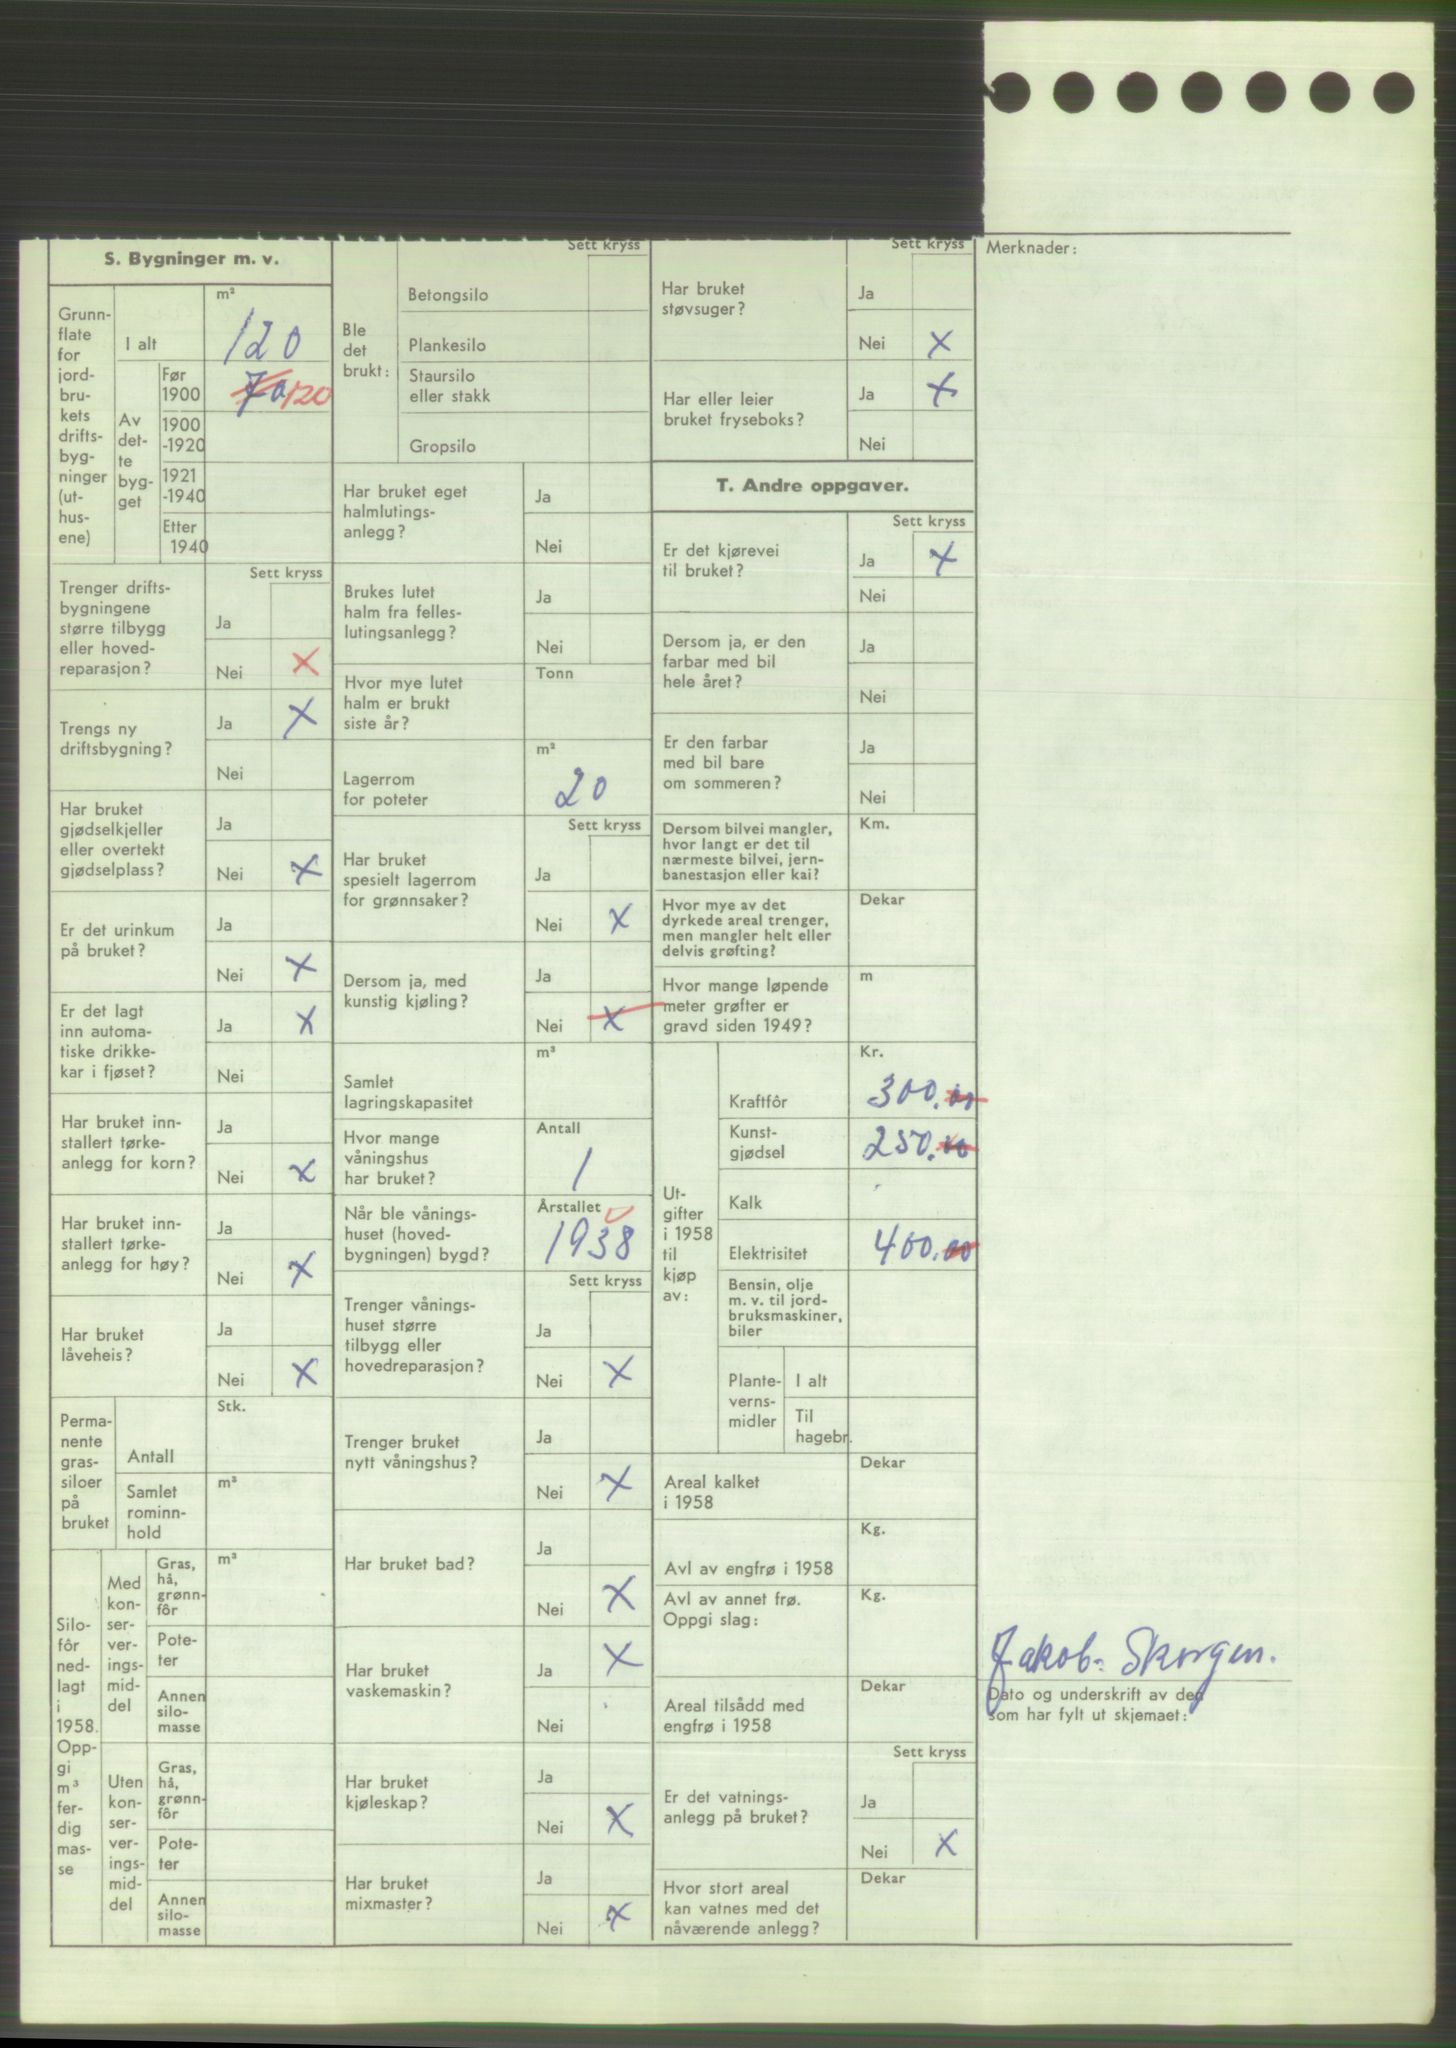 S. Bygninger m. v.
Grunn-
flate
for
jord-
bru-
kets
drifts-
byg-
ninger
(ut-
hus-
ene)
I alt
m²
120
Av
det-
te
byg-
get
Før
1900
70 120
1900
-1920
1921
-1940
Etter
1940
Sett kryss
Trenger drifts-
bygningene
større tilbygg
eller hoved-
reparasjon?
Ja
Nei X
Trengs ny
driftsbygning?
Ja X
Nei
Har bruket
gjødselkjeller
eller overtekt
gjødselplass?
Ja
Nei X
Er det urinkum
på bruket?
Ja
Nei X
Er det lagt
inn automa-
tiske drikke-
kar i fjøset?
Ja X
Nei
Har bruket inn-
stallert tørke-
anlegg for korn?
Ja
Nei X
Har bruket inn-
stallert tørke-
anlegg for høy?
Ja
Nei X
Har bruket
låveheis?
Ja
Nei X
Perma-
nente
gras-
siloer
på
bruket
Antall
Stk.
Samlet
rominn-
hold
m³
Silo-
fôr
ned-
lagt
i
1958.
Opp-
gi
m³
fer-
dig
mas-
se
Med
kon-
ser-
ver-
ings-
mid-
del
Gras,
hå,
grønn-
fôr
m³
Pote-
ter
Annen
silo-
masse
Uten
kon-
ser-
ver-
ings-
mid-
del
Gras,
hå,
grønn-
fôr
Pote-
ter
Annen
silo-
masse
Sett kryss
Ble
det
brukt:
Betongsilo
Plankesilo
Staursilo
eller stakk
Gropsilo
Har bruket eget
halmlutings-
anlegg?
Ja
Nei
Brukes lutet
halm fra felles-
lutingsanlegg?
Ja
Nei
Hvor mye lutet
halm er brukt
siste år?
Tonn
Lagerrom
for poteter
m²
20
Sett kryss
Har bruket
spesielt lagerrom
for grønnsaker?
Ja
Nei X
Dersom ja, med
kunstig kjøling?
Ja
Nei X
Samlet
lagringskapasitet
m³
Hvor mange
våningshus
har bruket?
Antall
1
Når ble vånings-
huset (hoved-
bygningen) bygd?
Årstallet
1938
Sett kryss
Trenger vånings-
huset større
tilbygg eller
hovedreparasjon?
Ja
Nei X
Trenger bruket
nytt våningshus?
Ja
Nei X
Har bruket bad?
Ja
Nei X
Har bruket
vaskemaskin?
Ja X
Nei
Har bruket
kjøleskap?
Ja
Nei X
Har bruket
mixmaster?
Ja
Nei X
Sett kryss
Har bruket
støvsuger?
Ja
Nei X
Har eller leier
bruket fryseboks?
Ja X
Nei
T. Andre oppgaver.
Sett kryss
Er det kjørevei
til bruket?
Ja X
Nei
Dersom ja, er den
farbar med bil
hele året?
Ja
Nei
Er den farbar
med bil bare
om sommeren?
Ja
Nei
Dersom bilvei mangler,
hvor langt er det til
nærmeste bilvei, jern-
banestasjon eller kai?
Km.
Hvor mye av det
dyrkede areal trenger,
men mangler helt eller
delvis grøfting?
Dekar
Hvor mange løpende
meter grøfter er
gravd siden 1949?
m
Ut-
gifter
i 1958
til
kjøp
av:
Kr.
Kraftfôr
300.00
Kunst-
gjødsel
250.00
Kalk
Elektrisitet
400.00
Bensin, olje
m. v. til jord-
bruksmaskiner,
biler
Plante-
verns-
midler
I alt
Til
hagebr.
Areal kalket
i 1958
Dekar
Avl av engfrø i 1958
Kg.
Avl av annet frø.
Oppgi slag:
Kg.
Areal tilsådd med
engfrø i 1958
Dekar
Sett kryss
Er det vatnings-
anlegg på bruket?
Ja
Nei X
Hvor stort areal
kan vatnes med det
nåværende anlegg?
Dekar
Merknader:
Jakob Skorgen.
Dato og underskrift av den
som har fylt ut skjemaet: